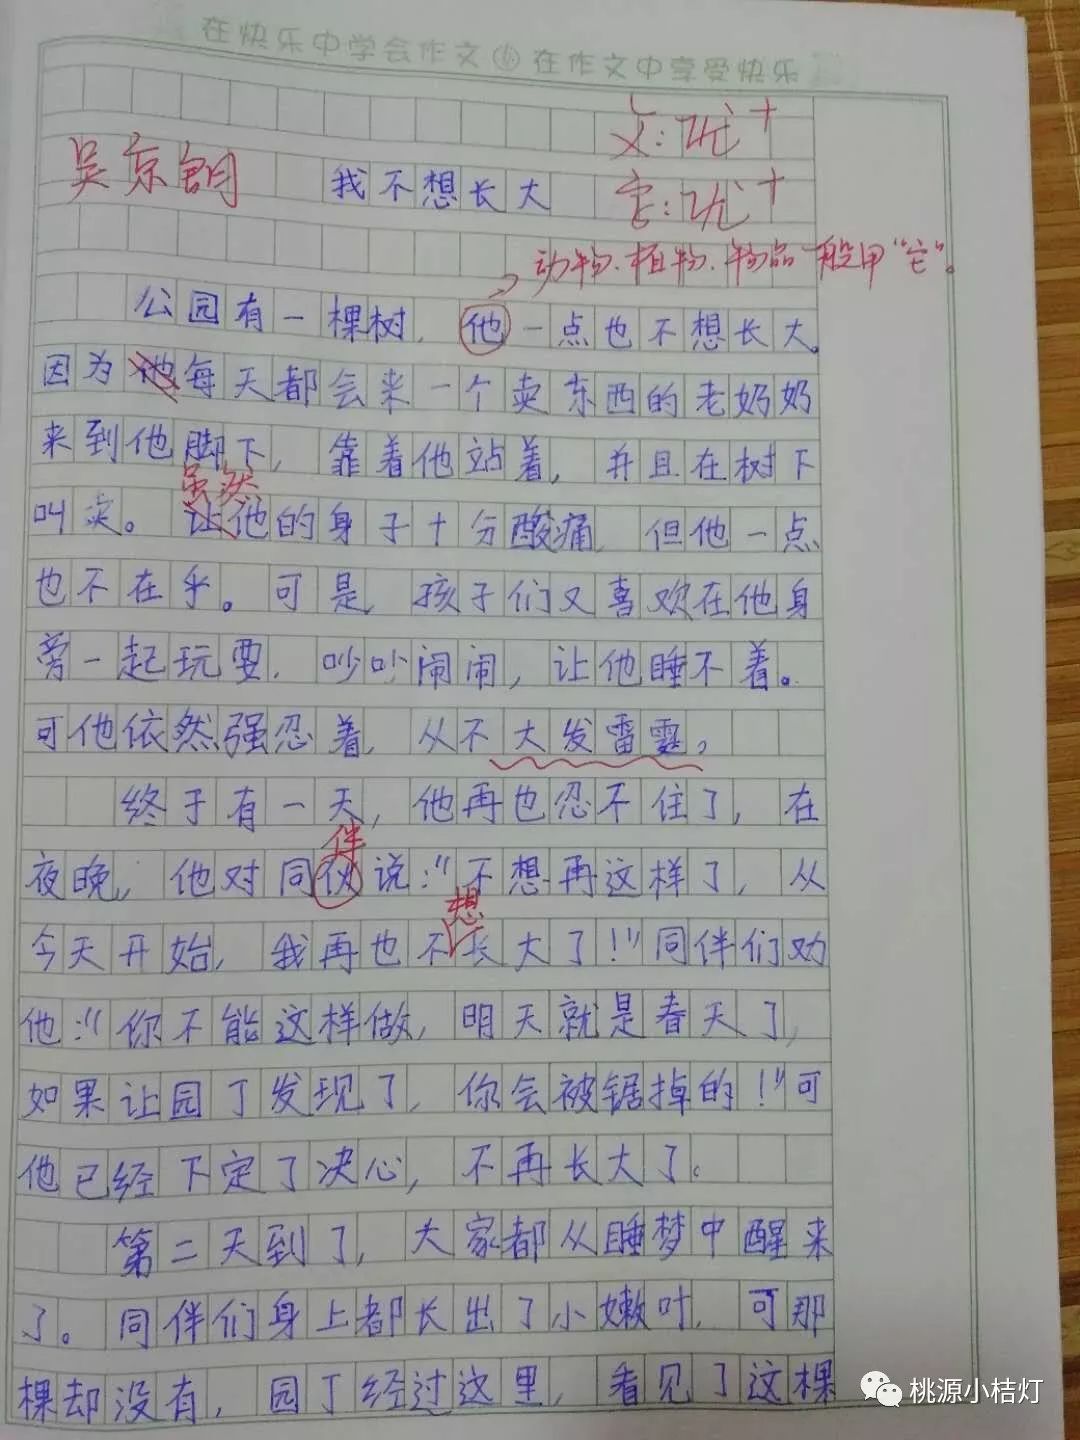 在快乐中学会作文 在作文中享受快乐
文:优+
吴京朗 我不想长大 字:优+
动物.植物.物品一般用“它”。
公园有一棵树,他一点也不想长大。
因为他每天都会来一个卖东西的老奶奶
来到他脚下,靠着他站着,并且在树下
虽然
叫卖。让他的身子十分酸痛,但他一点
也不在乎。可是,孩子们又喜欢在他身
旁一起玩耍,吵吵闹闹,让他睡不着。
可他依然强忍着,从不大发雷霆。
终于有一天,他再也忍不住了,在
伴
夜晚,他对同伙说:“不想再这样了,从
想
今天开始,我再也不长大了!”同伴们劝
他:“你不能这样做,明天就是春天了,
如果让园丁发现了,你会被锯掉的!”可
他已经下定了决心,不再长大了。
第二天到了,大家都从睡梦中醒来
了。同伴们身上都长出了小嫩叶,可那
棵却没有,园丁经过这里,看见了这棵
桃源小桔灯